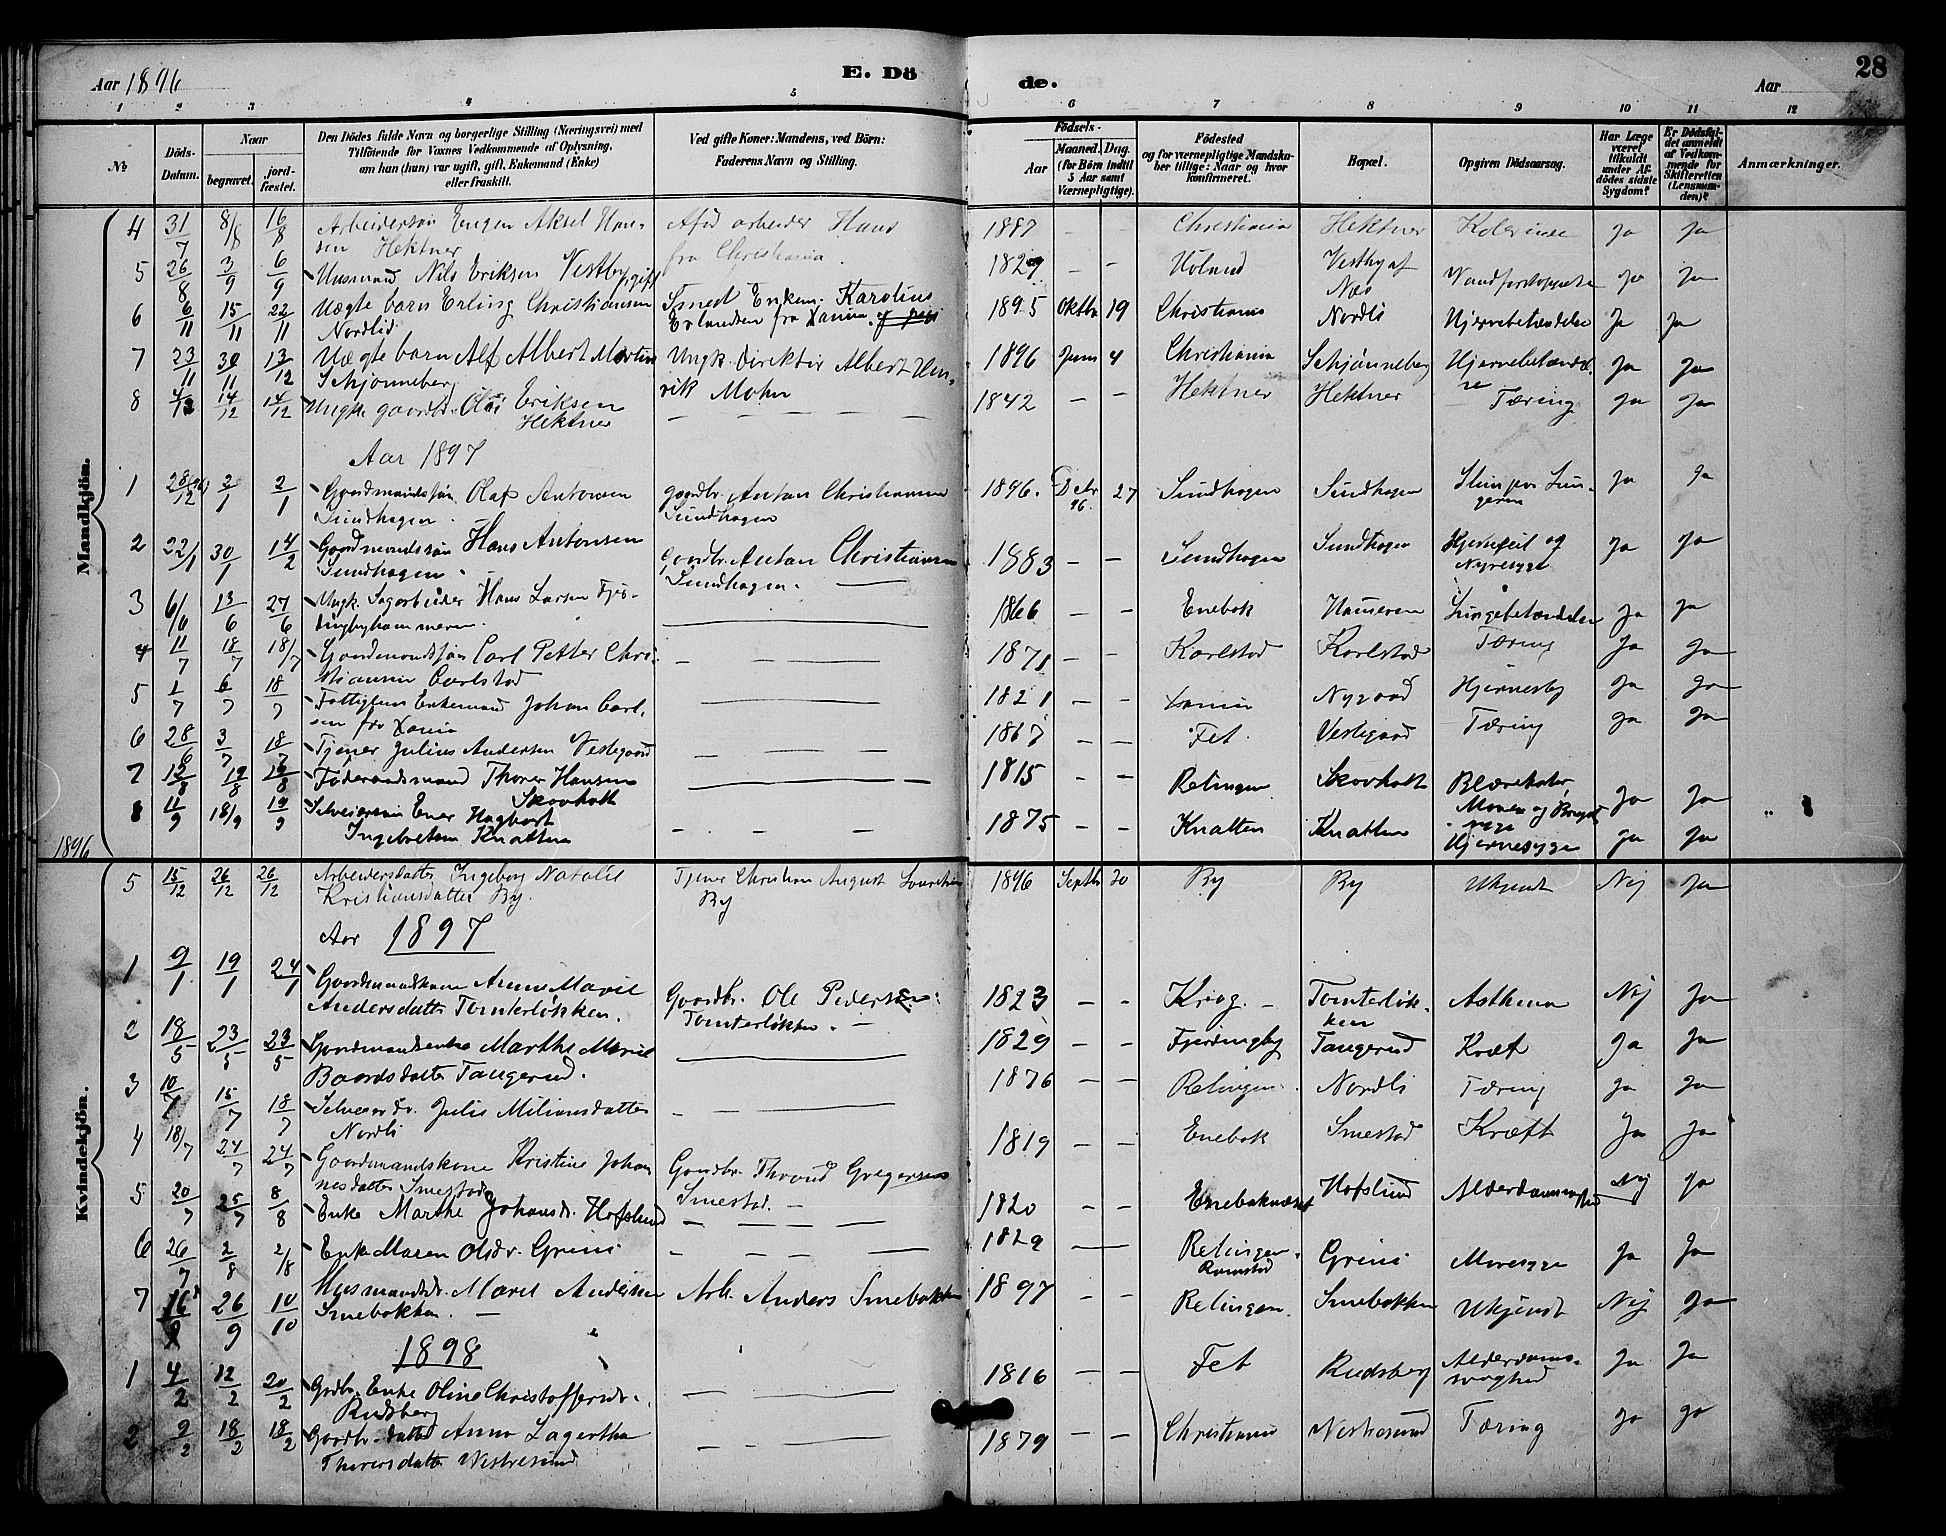 Aar 1896
E. Dö
de.
Aar
28
1 2 3 4 5 6 7 8 9 10 11 12
№
Döds-Datum.
Naar
begravet.
jordfæstet.
Den Dödes fulde Navn og borgerlige Stilling (Næringsvei) med
Tilföiende for Voxnes Vedkommende af Oplysning,
om han (hun) var ugift, gift, Enkemand (Enke)
eller fraskilt.
Ved gifte Koner: Mandens, ved Börn:
Faderens Navn og Stilling.
Födsels-
Aar
Maaned. Dag.
(for Börn indtil
5 Aar samt
Værnepligtige).
Födested
og for værnepligtige Mandska-
ber tillige: Naar og hvor
konfirmeret.
Bopæl.
Opgiven Dödsaarsag.
Har Læge
været
tilkaldt
under Af-
dödes sidste
Sygdom?
Er Dödsfal-
det anmeldt
af Vedkom-
mende for
Skifteretten
(Lensman-
den)?
Anmærkninger.
Mandkjön.
4 31/7 8/8 16/8 Arbeidersøn Eugen Aksel Han-
sen Hektner
Hans
fra Christiania.
1887 - - Christiania Hektner Ja Ja
5 26/8 3/9 6/9 Husmand Nils Eriksen Vestby, gift
1829 - - Høland Vestby af
Næs
Vandforstoppelse Ja Ja
6 6/11 15/11 22/11 Uægte barn Erling Christiansen
Nordlid
Smed Enkem. Karolius
Erlandsen fra Xania.
1895 Oktbr 19 Christiania Nordli Hjernebetændelse Ja Ja
7 23/11 30/11 13/12 Uægte barn Alf Albert Martin
Schjønneberg
Ungk. Direktør Albert Hen-
rik Mohn
1896 Juni 4 Christiania Schjønneberg Hjernebetændel-
se
Ja Ja
8 4/12 14/12 14/12 Ungk. gaardbr. Ole Eriksen
Hektner
1842 - - Hektner Hektner Tæring Ja Ja
Aar 1897
1 28/12 96 2/1 2/1 Gaardmandssøn Olaf Antonsen
Sundhagen.
Gaardbr. Anton Christiansen
Sundhagen
1896. Debr
96.
27 Sundhagen Sundhagen Slim paa Lun-
gerne
Ja Ja
2 22/1 30/1 14/2 Gaardmandssøn Hans Antonsen
Sundhagen.
Gaardbr. Anton Christiansen
Sundhagen.
1883 - - Sundhagen Sundhagen Hjertefeil og
Nyresyge
Ja Ja
3 6/6 13/6 27/6 Ungk. Sagarbeider Hans Larsen Fjer-
dingbyhammeren
1866 - - Enebak Hammeren Lungebetændelse Ja Ja
4 11/7 18/7 18/7 Gaardmandssøn Carl Petter Chri-
stiansen Carlstad
1871 - - Karlstad Karlstad Tæring Ja Ja
5 1/7 6/7 18/7 Fattiglem Enkemand Johan Carl-
sen fra Xania
1821 - - Xania Nygaard Hjernesyg Ja Ja
6 28/6 3/7 18/7 Tjener Julius Andersen Vestegaard
1867 - - Fet. Vestegaard Tæring Ja Ja
7 12/8 19/8 19/8 Føderaadsmand Thorer Hansen
Skovholt
1815 - - Relingen Skovholt Blærekatar,
Ja Ja
8 11/9 18/9 19/9 Selveiersøn Ener Hagbart
Ingebretsen Knatten
1875 - - Knatten Knatten Hjernesyge Ja Ja
1896
Kvindekjön.
5 15/12 26/12 26/12 Arbeidersdatter Ingeborg Natalie
Kristiansdatter By.
Tjener Christian August
By
1896 Septbr 20 By By Ukjendt Nej Ja
Aar 1897
1 9/1 19/1 24/1 Gaardmandskone Anne Marie
Andersdatter Tomterløkken.
Gaardbr. Ole Pedersen
Tomterløkken. -
1823 - - Krog. - Tomterløk-
ken
Asthma Nej Ja
2 18/5 23/5 23/5 Gaardmandsenke Marthe Marie
Baardsdatter Tangerud.
1829 - - Fjerdingby Tangerud Kræft Ja Ja
3 10/7 15/7 18/7 Selveierdr. Julie Miliansdatter
Nordli
1876 - - Relingen. Nordli Tæring Ja Ja
4 18/7 24/7 24/7 Gaardmandskone Kristine Johan
nesdatter Smestad
Gaardbr. Thrond Gregersen
Smestad. -
1819 - - Enebak Smestad Kræft Ja Ja
5 20/7 25/7 8/8 Enke Marthe Johansdr. Hofslund
1820 - - Enebaknæset Hofslund Alderdomssvaghed Nej Ja
6 26/7 2/8 2/8 Enke Maren Olsdr. Grini
1829 - Relingen.
Ramstad
Grini Mavesyge Ja Ja
7 16/9 26/9 10/10 Husmandsdr. Maret Andersen
Smebakken. -
Arb. Anders Smebakken
1897 - - Relingen. Smebakken Ukjendt Nej Ja
1898
1 4/2 12/2 20/2 Grdbr. Enke Oline Christoffersdr.
Rudsberg
1816 - - Fet Rudsberg Alderdoms-
svaghed
Ja Ja
2 9/2 18/2 18/2 Gaardbr. datter Anna Lagertha
Thorersdatter Nestresund
1879 - - Christiania Nestresund Tæring Ja Ja